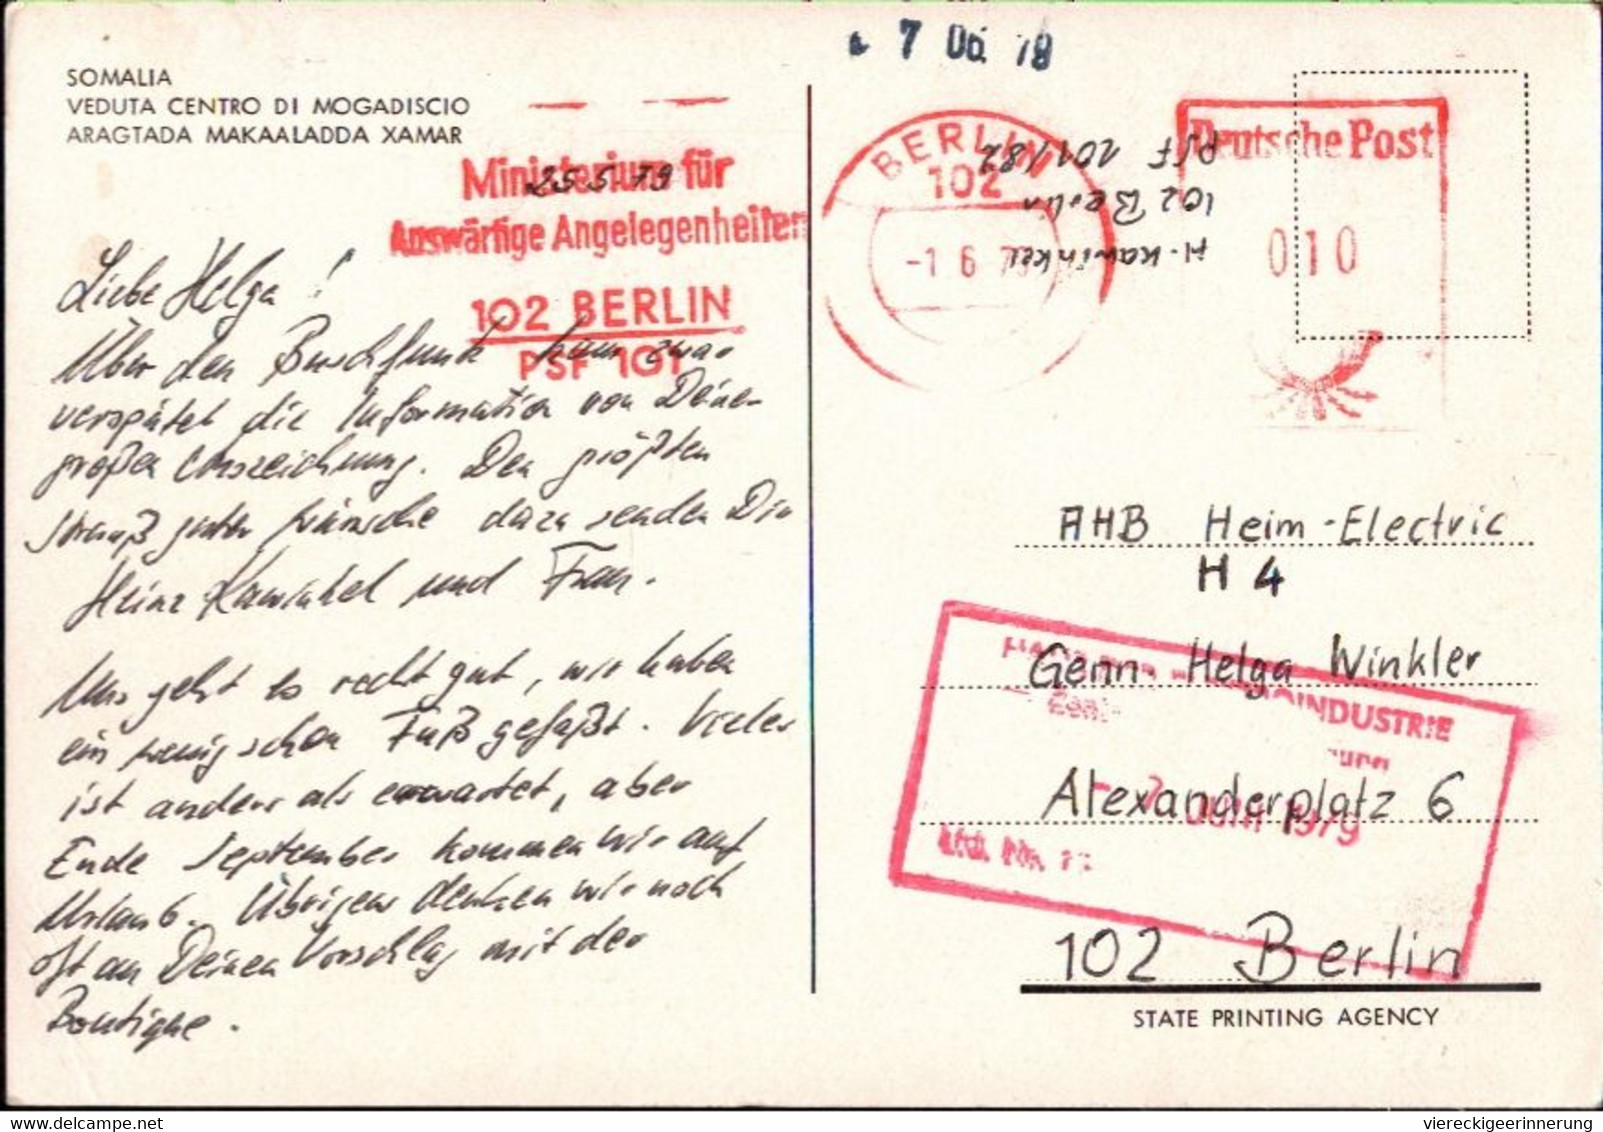 SOMALIA
VEDUTA CENTRO DI MOGADISCIO
ARAGTADA MAKAALADDA XAMAR
25.5.79
Ministerium für
Auswärtige Angelegenheiten
102 BERLIN
PSF 101
Liebe Helga!
Über den Buschfunk kam zwar
verspätet die Information von Deiner
großen Auszeichnung. Den größten
Strauß guter Wünsche dazu senden Dir
Heinz Kawinkel und Frau.
Uns geht es recht gut, wir haben
ein wenig schon Fuß gefaßt. Vieles
ist anders als erwartet, aber
Ende September kommen wir auf
Urlaub. Übrigens denken wir noch
oft an Deinen Vorschlag mit der
Boutique.
7 06. 79
BERLIN
102
-1 6 7
Deutsche Post
010
H. Kawinkel
102 Berlin
PSF 101/82
AHB Heim-Electric
H 4
Genn. Helga Winkler
INDUSTRIE
Alexanderplatz 6
7. JUNI 1979
102 Berlin
STATE PRINTING AGENCY
viereckigeerinnerung
delcampe.net